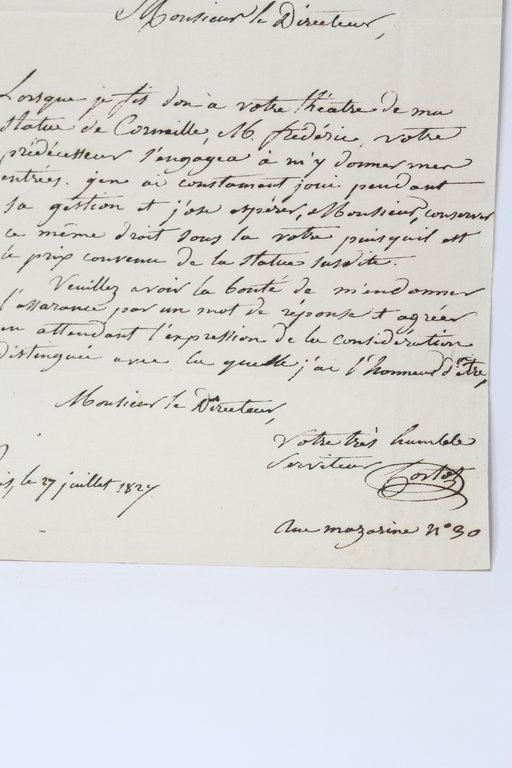 Monsieur le Directeur,
Lorsque je fis don à votre théatre de ma
statue de Corneille, M. frédéric, votre
prédécesseur s'engagea à m'y donner mes
entrées. j'en ai constament joui pendant
sa gestion et j'ose espérer, Monsieur, conserver
ce même droit sous la votre puisqu'il est
le prix convenu de la statue susdite.
Veuillez avoir la bonté de m'en donner
l'assurance par un mot de réponse et agréer
en attendant l'expression de la considération
distinguée avec la quelle j'ai l'honneur d'être,
Monsieur le Directeur,
Votre très humble
Serviteur Cortot
is, le 27 juillet 1827
Rue mazarine n° 30